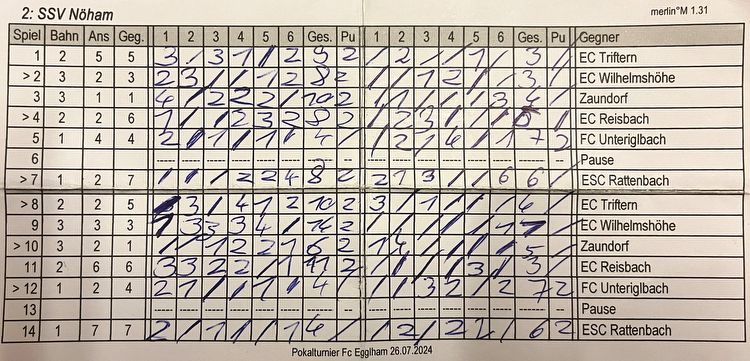 2: SSV Nöham
merlin°M 1.31
Spiel Bahn Ans Geg. 1 2 3 4 5 6 Ges. Pu 1 2 3 4 5 6 Ges. Pu Gegner
1 2 5 5 3 / 3 1 / 2 9 2 / 2 / / 1 / 3 / EC Triftern
> 2 3 2 3 2 3 / / 1 2 8 2 / / 1 2 / / 3 / EC Wilhelmshöhe
3 3 1 1 4 / 2 2 2 / 10 2 1 / / / / 3 4 / Zaundorf
> 4 2 2 6 1 / / 2 3 2 8 2 / 2 3 / / / 5 / EC Reisbach
5 1 4 4 2 / 1 / 1 / 4 / / 2 / 4 / 1 7 2 FC Unteriglbach
6 ---- ---- ---- ---- ---- ---- ---- -- ---- ---- ---- ---- ---- ---- ---- -- Pause
> 7 1 2 7 / / / 2 2 4 8 2 2 1 3 / / 6 / ESC Rattenbach
> 8 2 2 5 / 3 / 4 1 2 10 2 3 / 1 / / / 4 / EC Triftern
9 3 3 3 1 3 3 3 4 / 14 2 / / / / / 1 1 / EC Wilhelmshöhe
> 10 3 2 1 / / 1 2 2 1 6 2 1 4 / / / / 5 / Zaundorf
11 2 6 6 3 3 2 2 / 1 11 2 / / / / 3 / 3 / EC Reisbach
> 12 1 2 4 2 1 / / 1 / 4 / / / 3 2 / 2 7 2 FC Unteriglbach
13 ---- ---- ---- ---- ---- ---- ---- -- ---- ---- ---- ---- ---- ---- ---- -- Pause
14 1 7 7 2 / 1 / / 1 4 / / 2 / 2 2 / 6 2 ESC Rattenbach
Pokalturnier Fc Egglham 26.07.2024